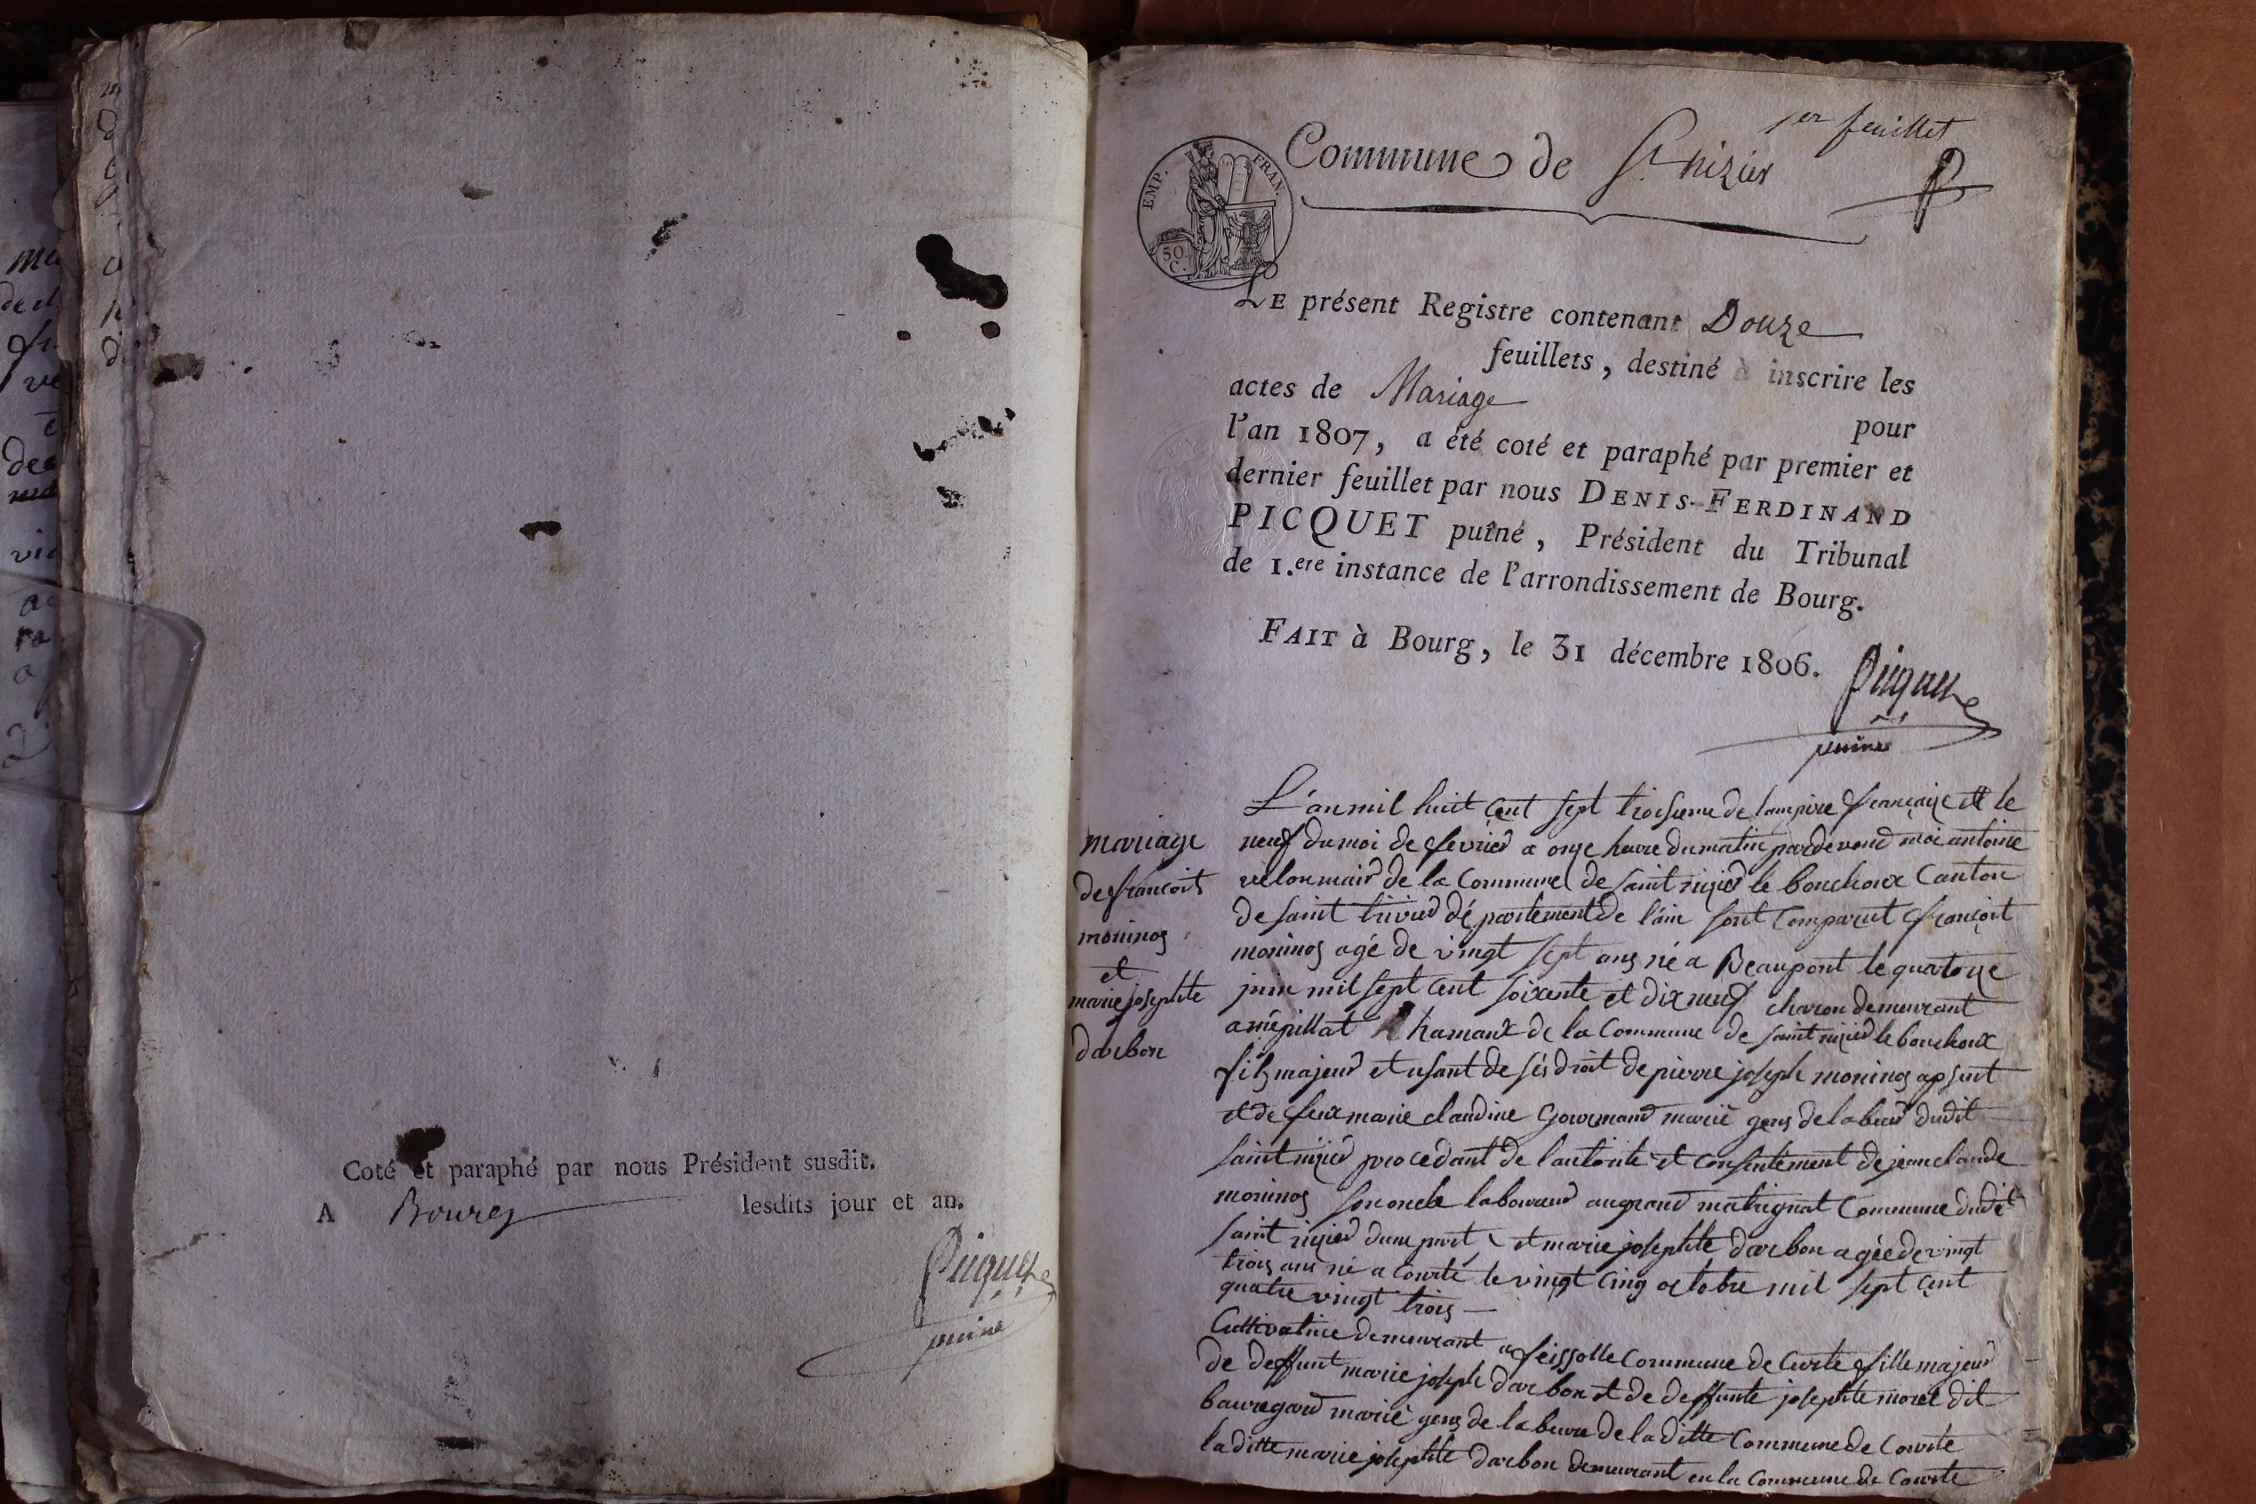 Coté et paraphé par nous Président susdit.
A Bourg lesdits jour et an.
Picquet
puiné
1er feuillet
Commune de St nizier
EMP. FRAN.
50 C.
LE présent Registre contenant Douze
feuillets, destiné à inscrire les
actes de Mariage
pour
l'an 1807, a été coté et paraphé par premier et
dernier feuillet par nous DENIS-FERDINAND
PICQUET puîné, Président du Tribunal
de 1.ere instance de l'arrondissement de Bourg.
FAIT à Bourg, le 31 décembre 1806.
Picquet
puiné
mariage
de francois
moninos
et
marie josephte
darbon
L'an mil huit cent sept troisieme de lampire francaise et le
neuf du moi de fevrier a onze heure du matin pardevend moi antoine
velon mair de la Commune de saint nizier le bouchoux Canton
de saint trivier département de l'ain sont comparut francoit
moninos agé de vingt sept ans né a Beaupont le quatorze
juin mil sept cent soixente et dix neuf charon demeurant
a mépillat hamaux de la Commune de saint nizier le bouchoux
fils majeur et usant de ses droit de pierre joseph moninos apsent
et de feux marie claudine Gourmand marié gens de labeur dudit
saint nizier procedant de lautorité et consentement de jean claude
moninos son oncle laboureur au grand matrignat Commune dudit
saint nizier dune part et marie josephte darbon agée de vingt
trois ans né a Courte le vingt cinq octobre mil sept cent
quatre vingt trois
Cultivatrice demeurant a feissolle Commune de Curte fille majeur
de deffunt marie joseph darbon et de deffunte josephte morel dit
bauregard marié gens de labeure de la ditte Commune de Courte
la ditte marie josephte darbon demeurant en la Commune de Courte